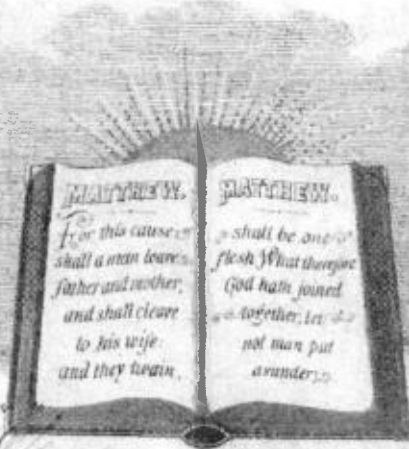 MATTHEW.
For this cause
shall a man leave
father and mother,
and shall cleave
to his wife:
and they twain,
MATTHEW.
shall be one
flesh What therefore
God hath joined
together, let
not man put
asunder